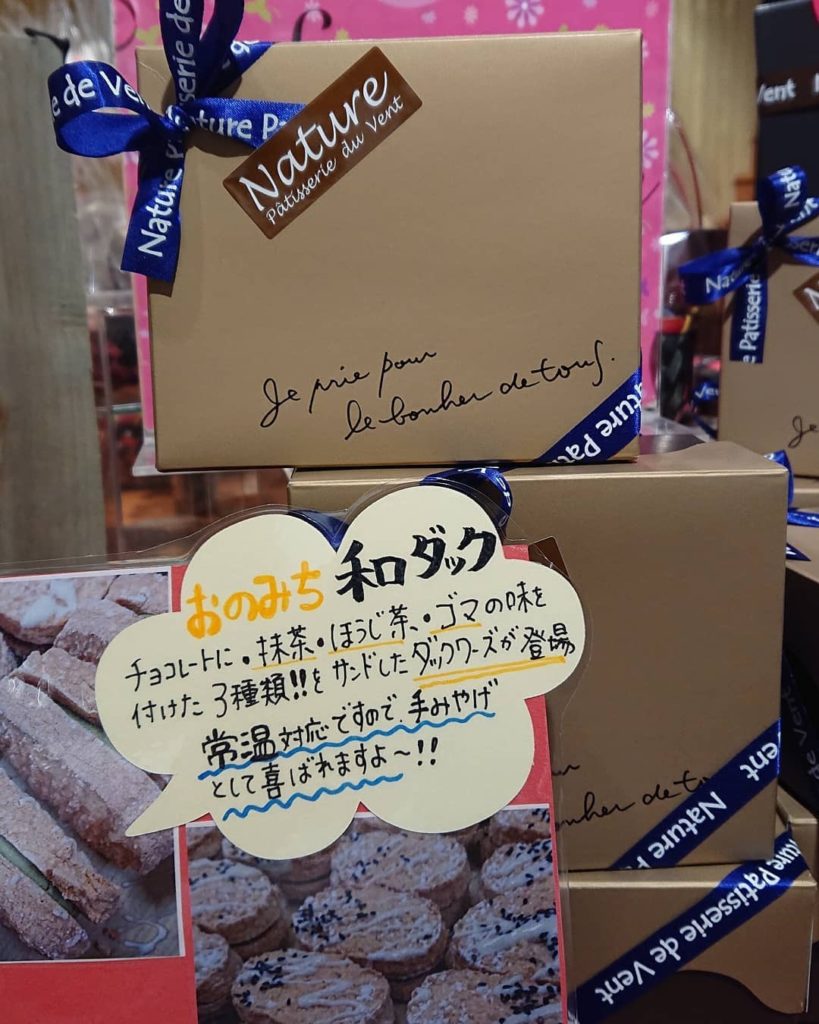 Nature Patisserie de Vent
Nature
Pâtisserie du Vent
Je prie pour
le bonher de tous.
Nature Pa
おのみち 和ダック
チョコレートに・抹茶・ほうじ茶、・ゴマの味を
付けた 3種類!!を サンドしたダックワーズが登場
常温対応ですので、手みやげ
として喜ばれますよ～!!
onher de to
Vent Nature Pa
Nature Patisserie de Vent
Vent
Nature
e Patisserie
Je